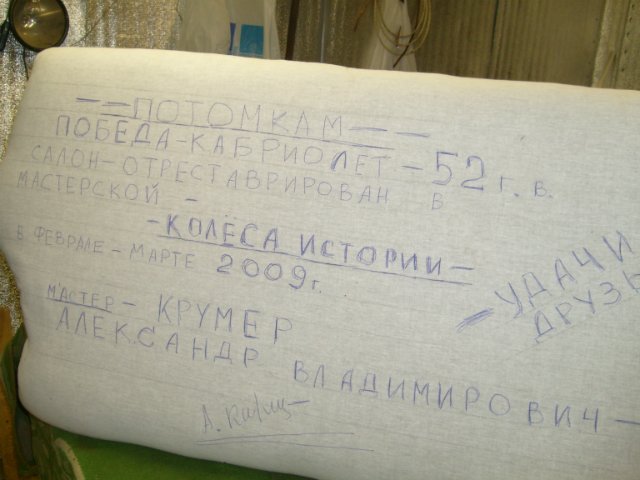 — ПОТОМКАМ — —
ПОБЕДА-КАБРИОЛЕТ - 52 г. в.
САЛОН-ОТРЕСТАВРИРОВАН В
МАСТЕРСКОЙ -
- КОЛЁСА ИСТОРИИ -
В ФЕВРАЛЕ - МАРТЕ 2009 г.
- УДАЧИ
ДРУЗЬ
МАСТЕР - КРУМЕР
АЛЕКСАНДР ВЛАДИМИРОВИЧ -